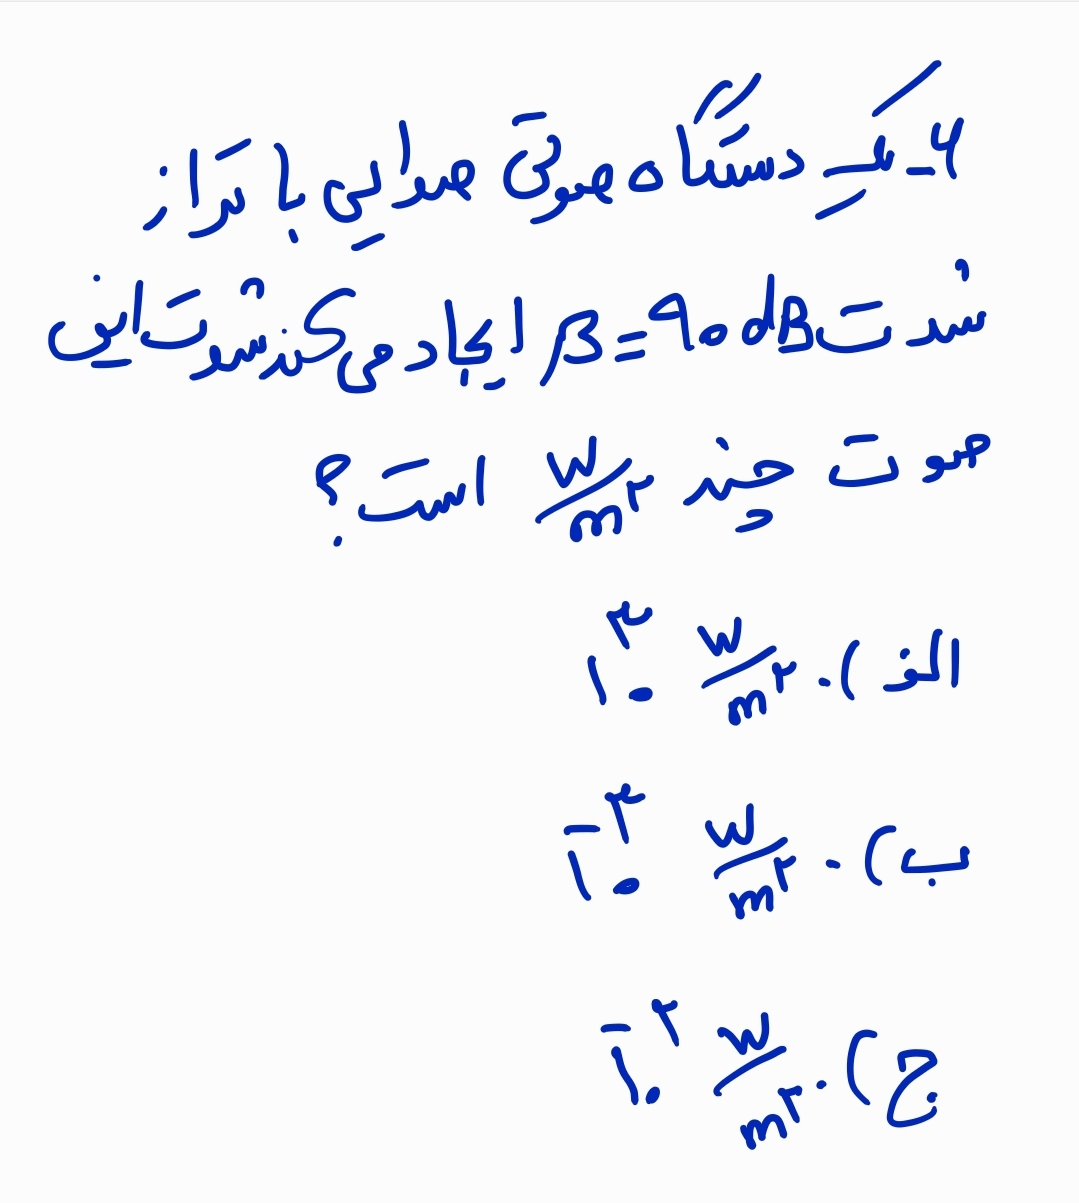 ۶- یک دستگاه صوتی صدایی با تراز
شدت β=۹۰ dB ایجاد می‌کند شدت این
صوت چند W/m² است؟
الف). ۱۰^۳ W/m²
ب). ۱۰^-۳ W/m²
ج). ۱۰^-۲ W/m²